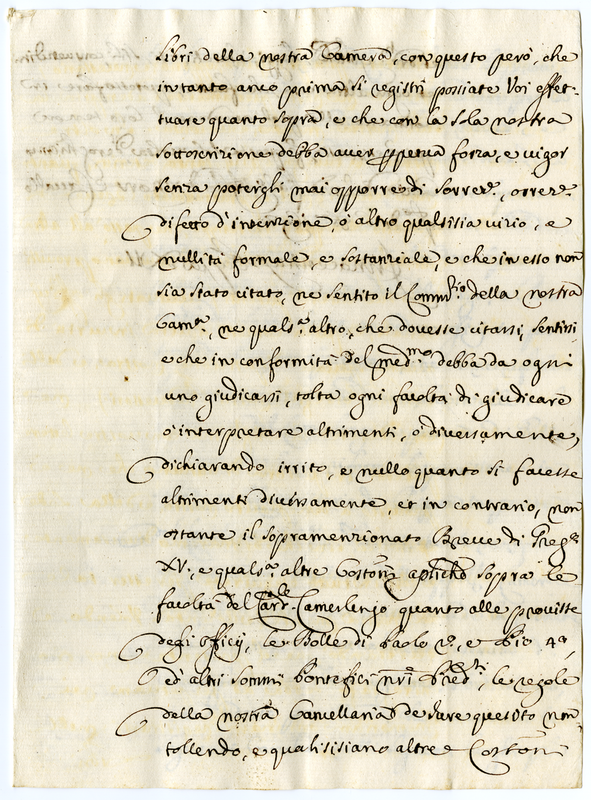 libri della nostra Camera, con questo però, che
intanto anco prima si registri possiate Voi effet-
tuare quanto sopra, e che con la sola nostra
sottoscrizione debba aver perpetua forza, e vigor
senza potergli mai opporre di sorrez.e, orrez.e
difetto d'intenzione, ò altro qualsisia vizio, e
nullità formale, e sostanziale, e che in esso non
sia stato citato, ne sentito il Comm.rio della nostra
Cam.a, ne quals.a altro, che dovesse citarsi, sentirsi
e che in conformità del med.mo debba da ogni
uno giudicarsi, tolta ogni facoltà di giudicare
ò interpretare altrimenti, ò diversamente,
dichiarando irrito, e nullo quanto si facesse
altrimenti diversamente, et in contrario, non
ostante il sopramenzionato Breve di Greg.o
XV, e quals.a altre Costoni aptiche sopra le
facoltà del Card.le Camerlengo quanto alle proviste
degl'officij, le Bolle di Paolo e Pio 4.o,
ed altri sommi Pontefici nri Pred.ri, le regole
della nostra Cancellaria de Jure quesito non
tollendo, e qualisisiano altre Costoni